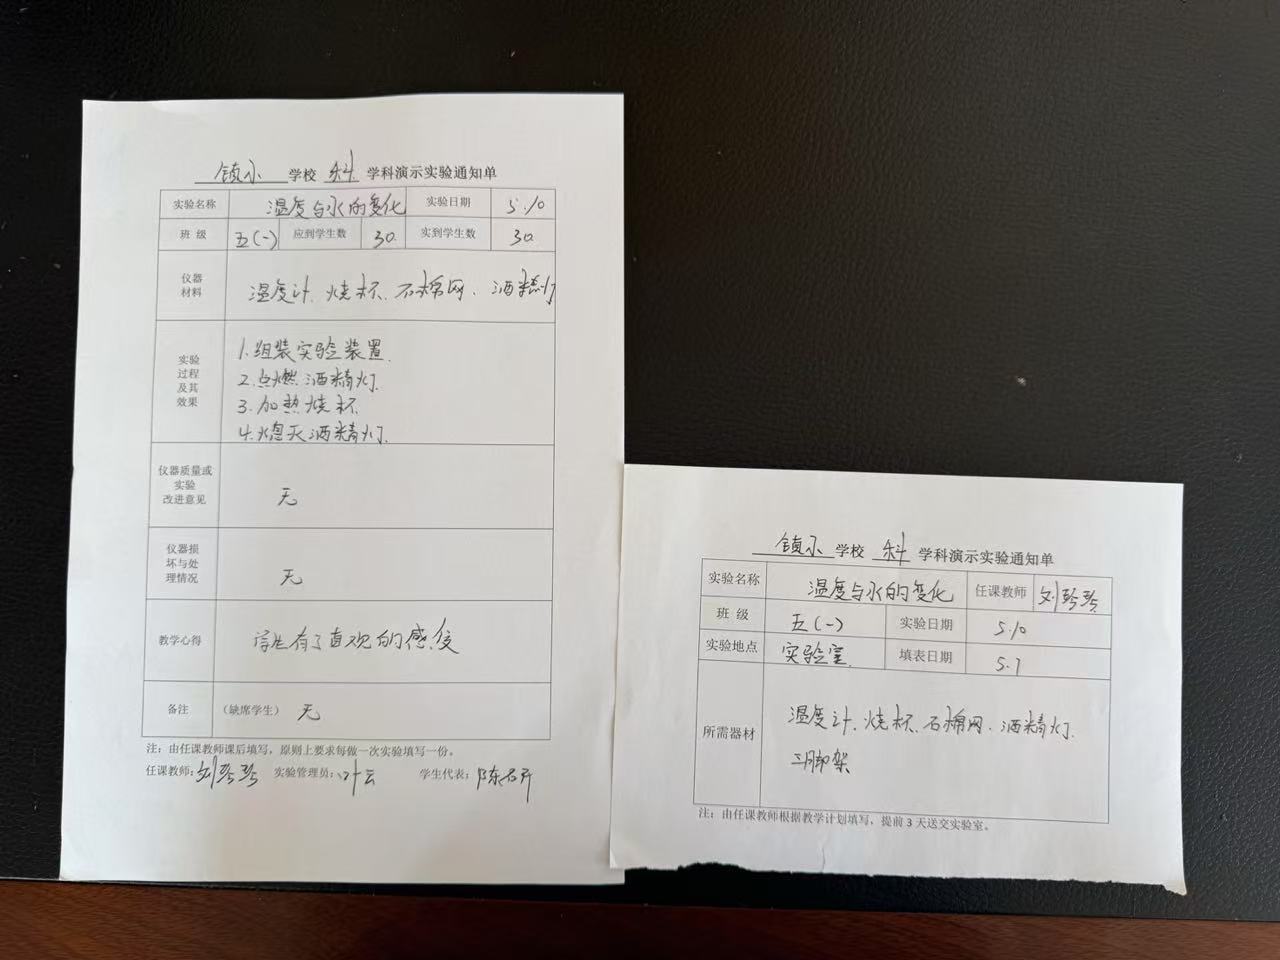 镇小 学校 科 学科演示实验通知单
实验名称 温度与水的变化 实验日期 5.10
班 级 五(一) 应到学生数 30. 实到学生数 30.
仪器
材料
温度计、烧杯、石棉网、酒精灯
实验
过程
及其
效果
1.组装实验装置.
2.点燃酒精灯.
3.加热烧杯
4.熄灭酒精灯.
仪器质量或
实验
改进意见
无
仪器损
坏与处
理情况
无
教学心得 学生有了直观的感受
备注 (缺席学生) 无
注：由任课教师课后填写，原则上要求每做一次实验填写一份。
任课教师: 刘琴琴 实验管理员: 叶云 学生代表: 陈
镇小 学校 科 学科演示实验通知单
实验名称 温度与水的变化 任课教师 刘琴琴
班 级 五(一) 实验日期 5.10
实验地点 实验室. 填表日期 5.7
所需器材
温度计、烧杯、石棉网、酒精灯.
三脚架
注：由任课教师根据教学计划填写，提前 3 天送交实验室。